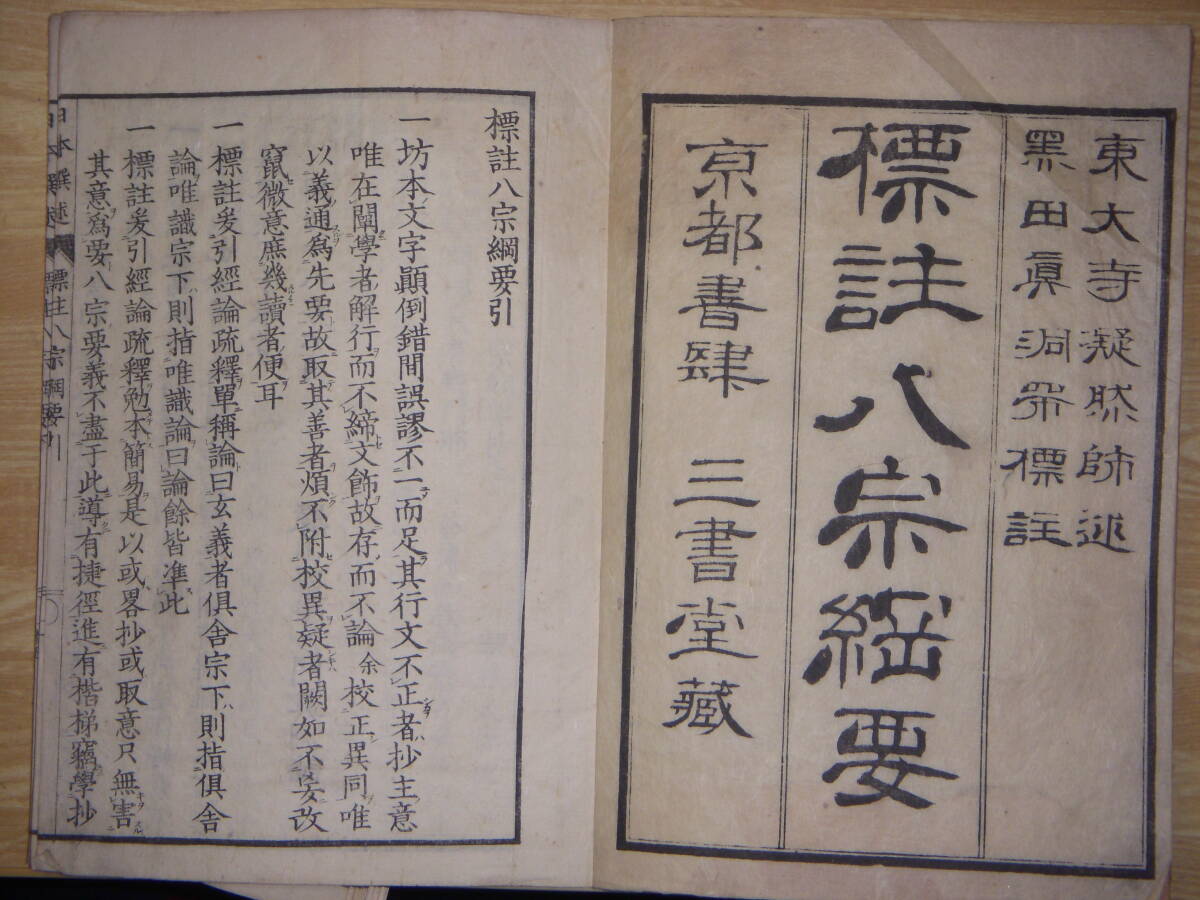 東大寺凝然師述
黑田眞洞㠯標註
標註八宗綱要
京都書肆 三書堂藏
標註八宗綱要引
一坊本文字顚倒錯間誤謬不一而足其行文不正者抄主意
唯在闡學者解行而不締文飾故存而不論余校正異同唯
以義通爲先要故取其善者煩不附校異疑者闕如不妄改
竄微意庶幾讀者便耳
一標註爰引經論疏釋單稱論曰玄義者俱舍宗下則指俱舍
論唯識宗下則指唯識論曰論餘皆準此
一標註爰引經論疏釋勉本簡易是以或畧抄或取意只無害
其意爲要八宗要義不盡于此導有捷徑進有楷梯竊學抄
標註八宗綱要引